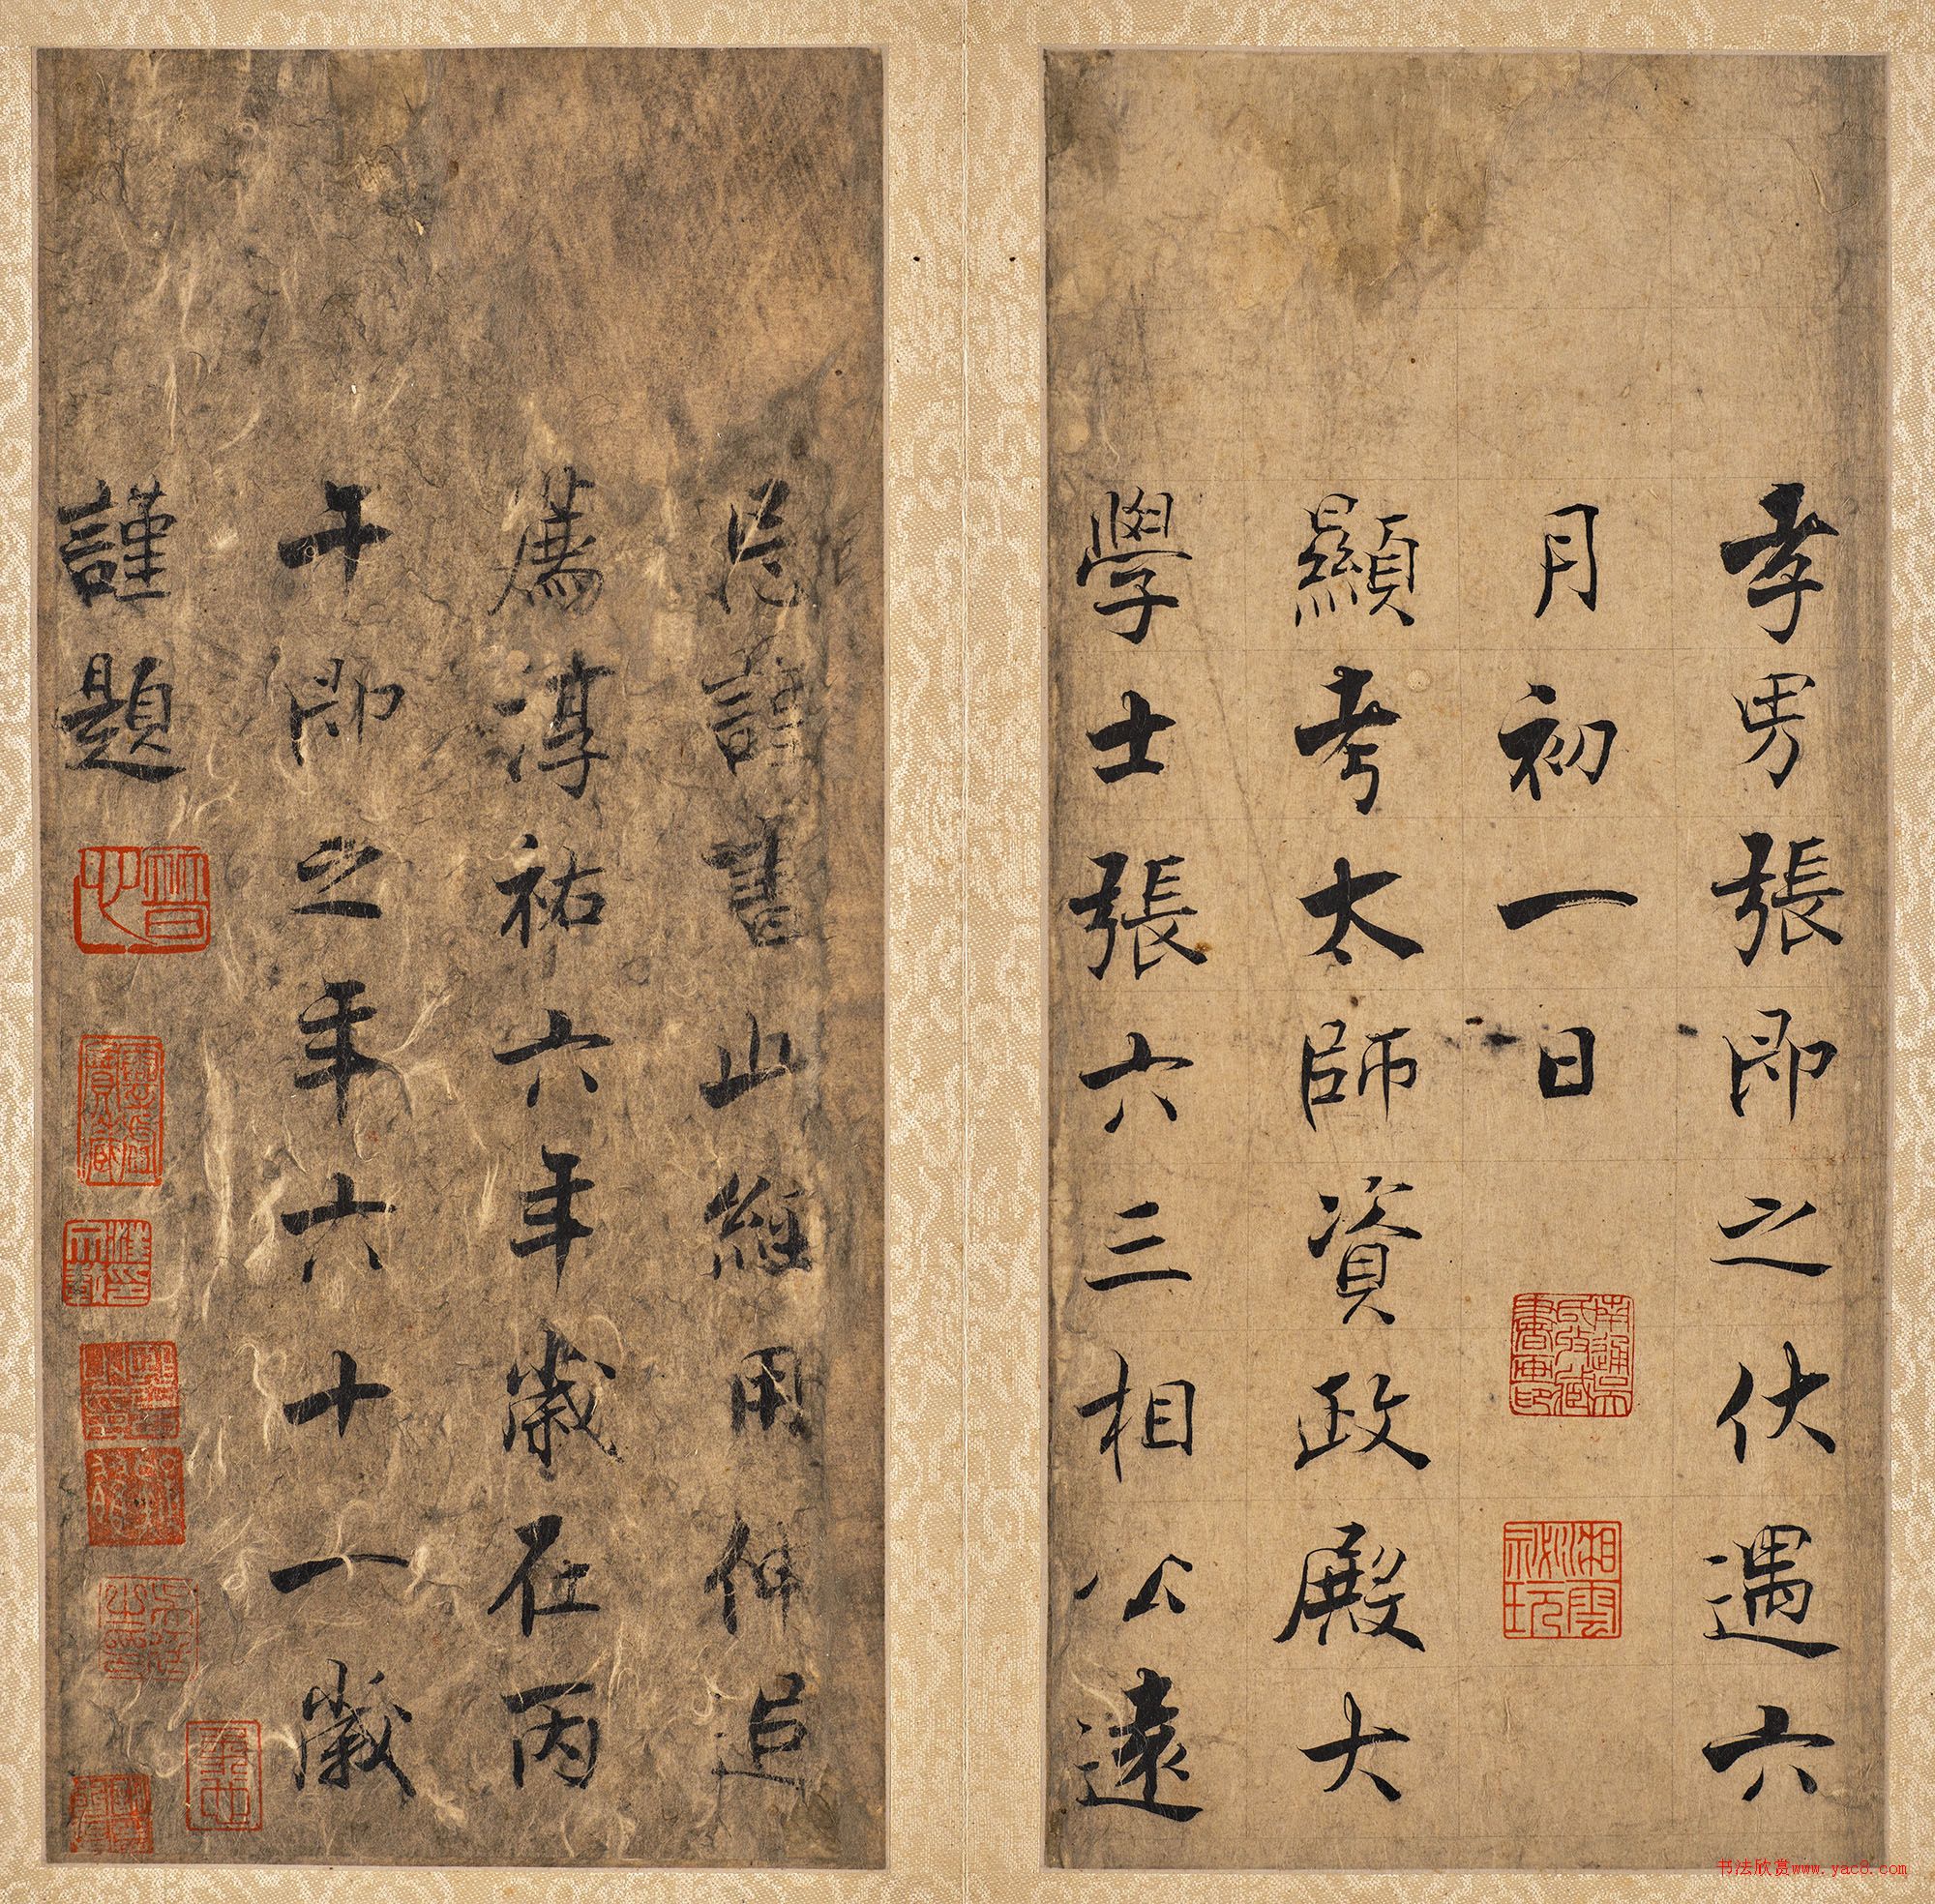 孝男張即之伏遇六
月初一日
顯考太師資政殿大
學士張六三相公遠
忌謹書此經用伸追
薦淳祐六年歲在丙
午即之年六十一歲
謹題
書法欣赏www.yac8.com